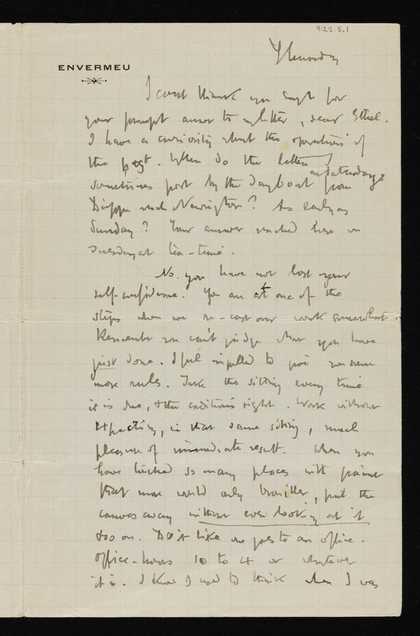 4125.5.1
Thursday
ENVERMEU
I can't thank you enough for
your prompt answer to my letter, dear Ethel.
I have a curiosity about the operations of
the post. When do the letters I
sometimes post by the day boat from on Saturdays
Dieppe reach Newington? As early as
Sunday? Your answer reached here on
Tuesday at tea-time.
No. you have not lost your
self-confidence. You are at one of the
steps when we re-cast our work somewhat
Remember you can't judge what you have
just done. I feel impelled to give you some
more rules. Take the sitting every time
it is due, & the conditions right. Work without
expecting, in that same sitting, much
pleasure of immediate result. When you
have touched so many places with paint
that more would only brouiller, put the
canvas away without ever looking at it
& so on. Do it like one goes to an office.
Office-hours 10 to 4 or whatever
it is. I know I used to think when I was